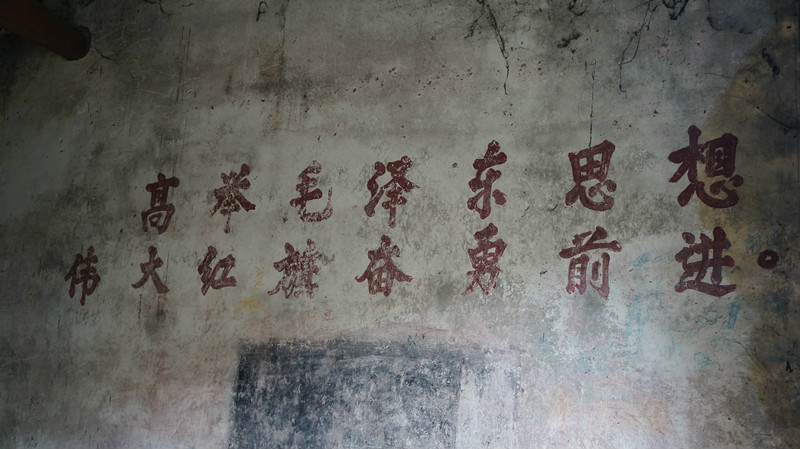 高举毛泽东思想
伟大红旗奋勇前进。